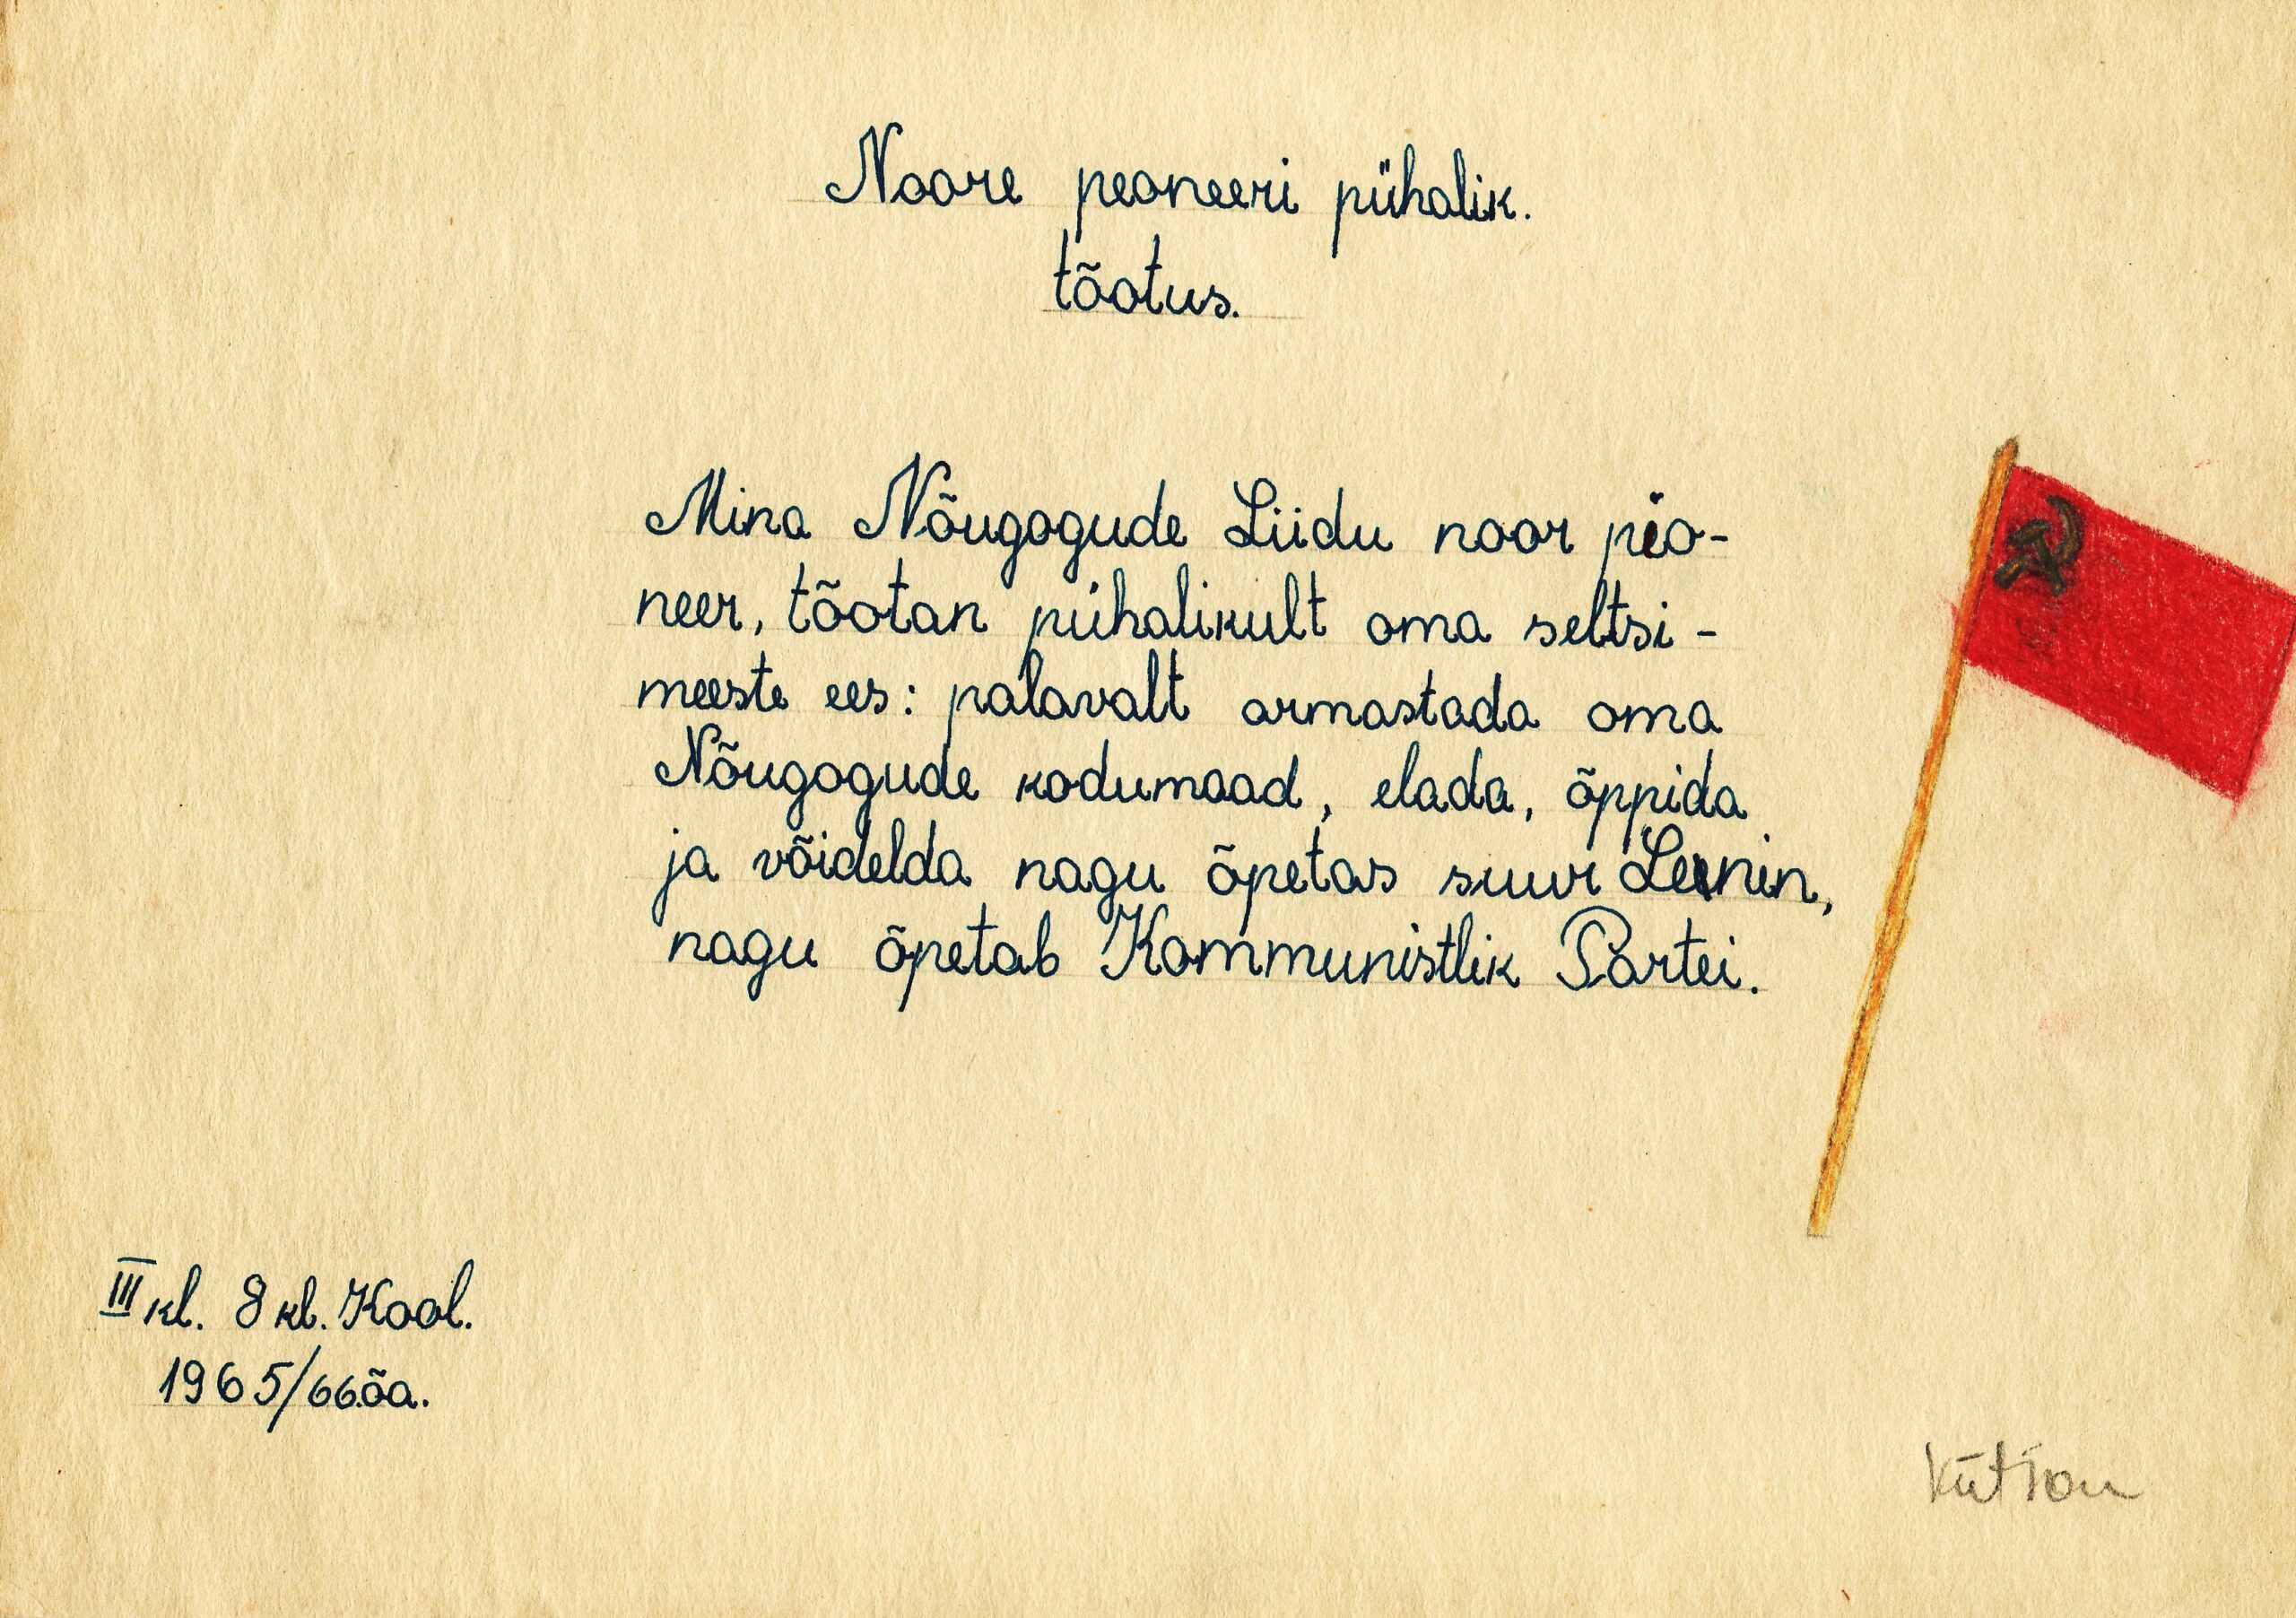 Noore peoneeri pühalik.
tõotus.
Mina Nõugogude Liidu noor pio-
neer, tõotan pühalikult oma seltsi-
meeste ees: palavalt armastada oma
Nõugogude kodumaad, elada, õppida
ja võidelda nagu õpetas suur Lenin,
nagu õpetab Kommunistlik Partei.
III kl. 8 kl. Kool.
1965/66.õa.